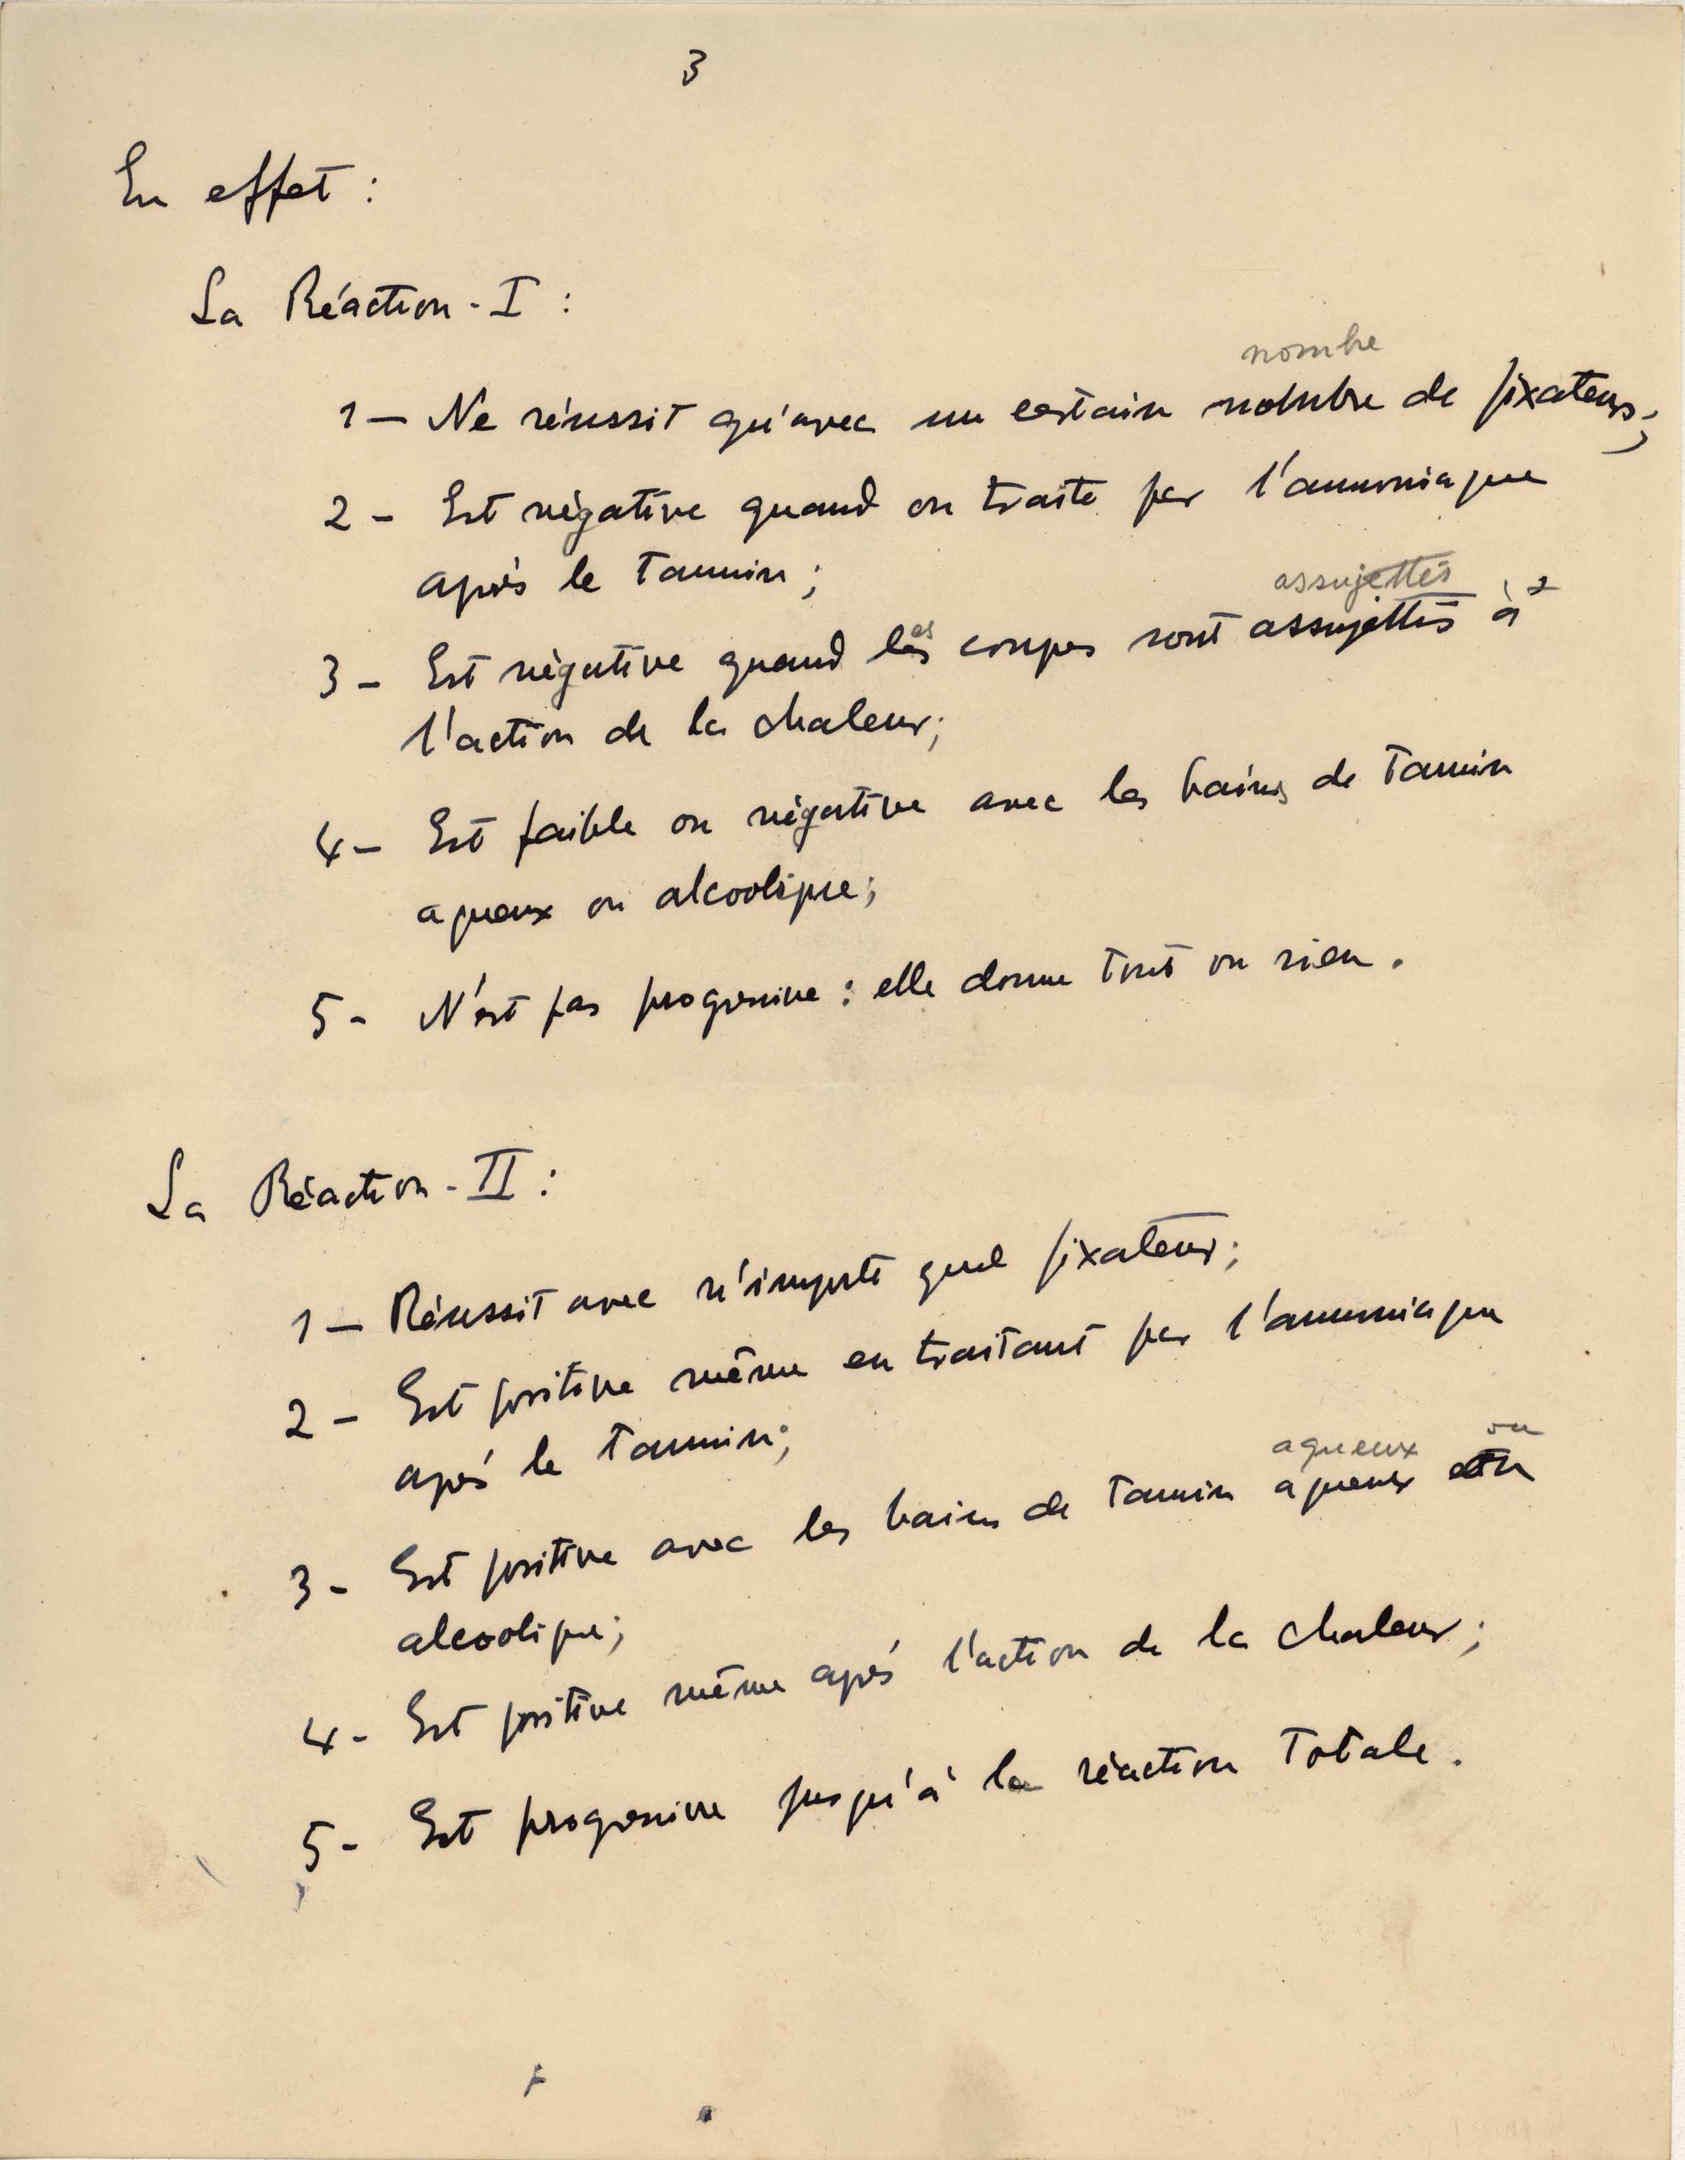 3
En effet :
La Réaction - I :
nombre
1 — Ne réussit qu'avec un certain nombre de fixateurs;
2 - Est négative quand on traite par l'ammoniaque
après le Tannin ;
assujettis
3 - Est négative quand les coupes sont assujettis à
l'action de la chaleur;
4 - Est faible ou négative avec les bains de Tannin
aqueux ou alcoolique;
5 - N'est pas progressive : elle donne tout ou rien .
La Réaction - II :
1 — Réussit avec n'importe quel fixateur;
2 - Est positive même en traitant par l'ammoniaque
après le Tannin;
aqueux ou
3 - Est positive avec les bains de Tannin aqueux ou
alcoolique;
4 - Est positive même après l'action de la chaleur;
5 - Est progressive jusqu'à la réaction Totale.